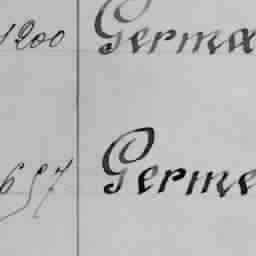 1200 Germa
657 Germe